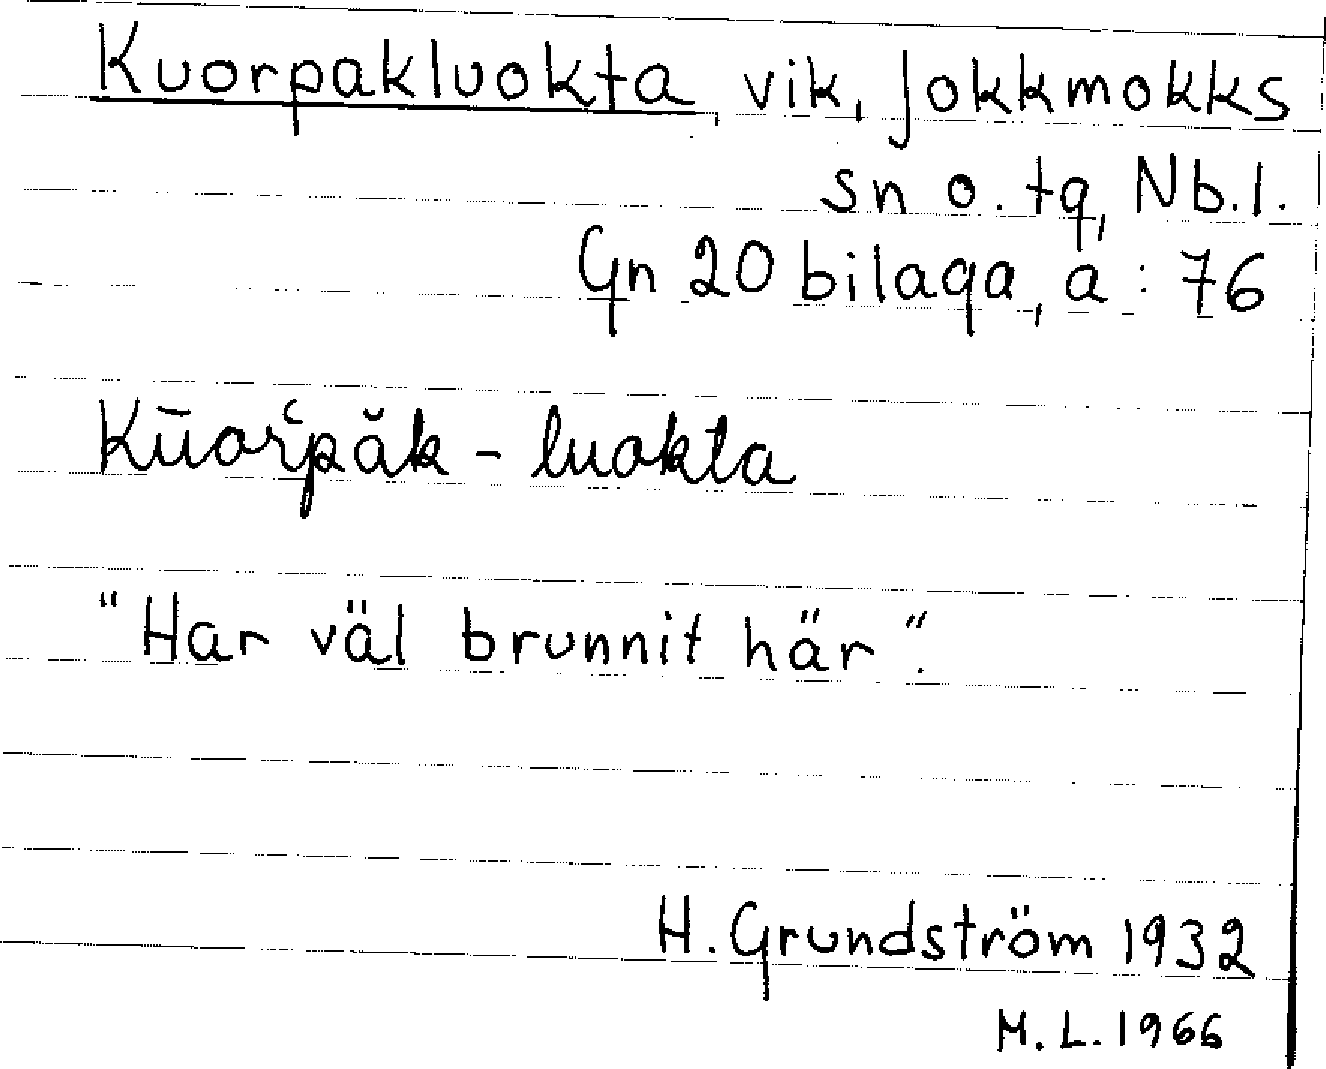 Kuorpakluokta, vik, Jokkmokks
sn o. tg, Nb.l.
Gn 20 bilaga, a : 76
Kūorʿpăk - luokta
"Har väl brunnit här".
H. Grundström 1932
M. L. 1966